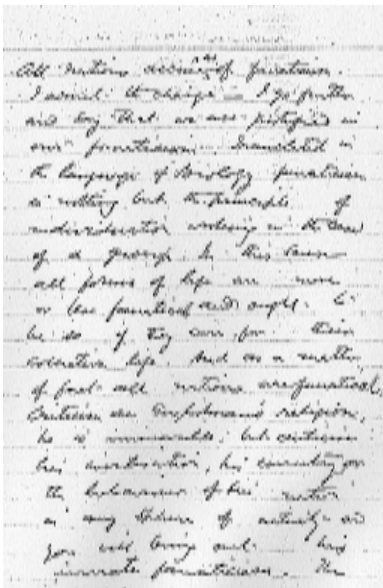 All nations accuse us of fanaticism.
I admit the charge – I go further
and say that we are justified in
our fanaticism. Translated in
the language of biology fanaticism
is nothing but the principle of
individuation working in the case
of a group. In this sense
all forms of life are more
or less fanatical and ought to
be so if they care for their
collective life. And as a matter
of fact all nations are fanatical.
Criticise an Englishman's religion,
he is immovable; but criticise
his civilisation, his country or
the behaviour of his nation
in any sphere of activity and
you will bring out his
innate fanaticism. The